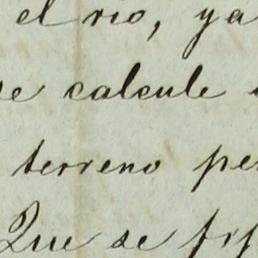 el rio, ya
se calcule
terreno per
Que se fij